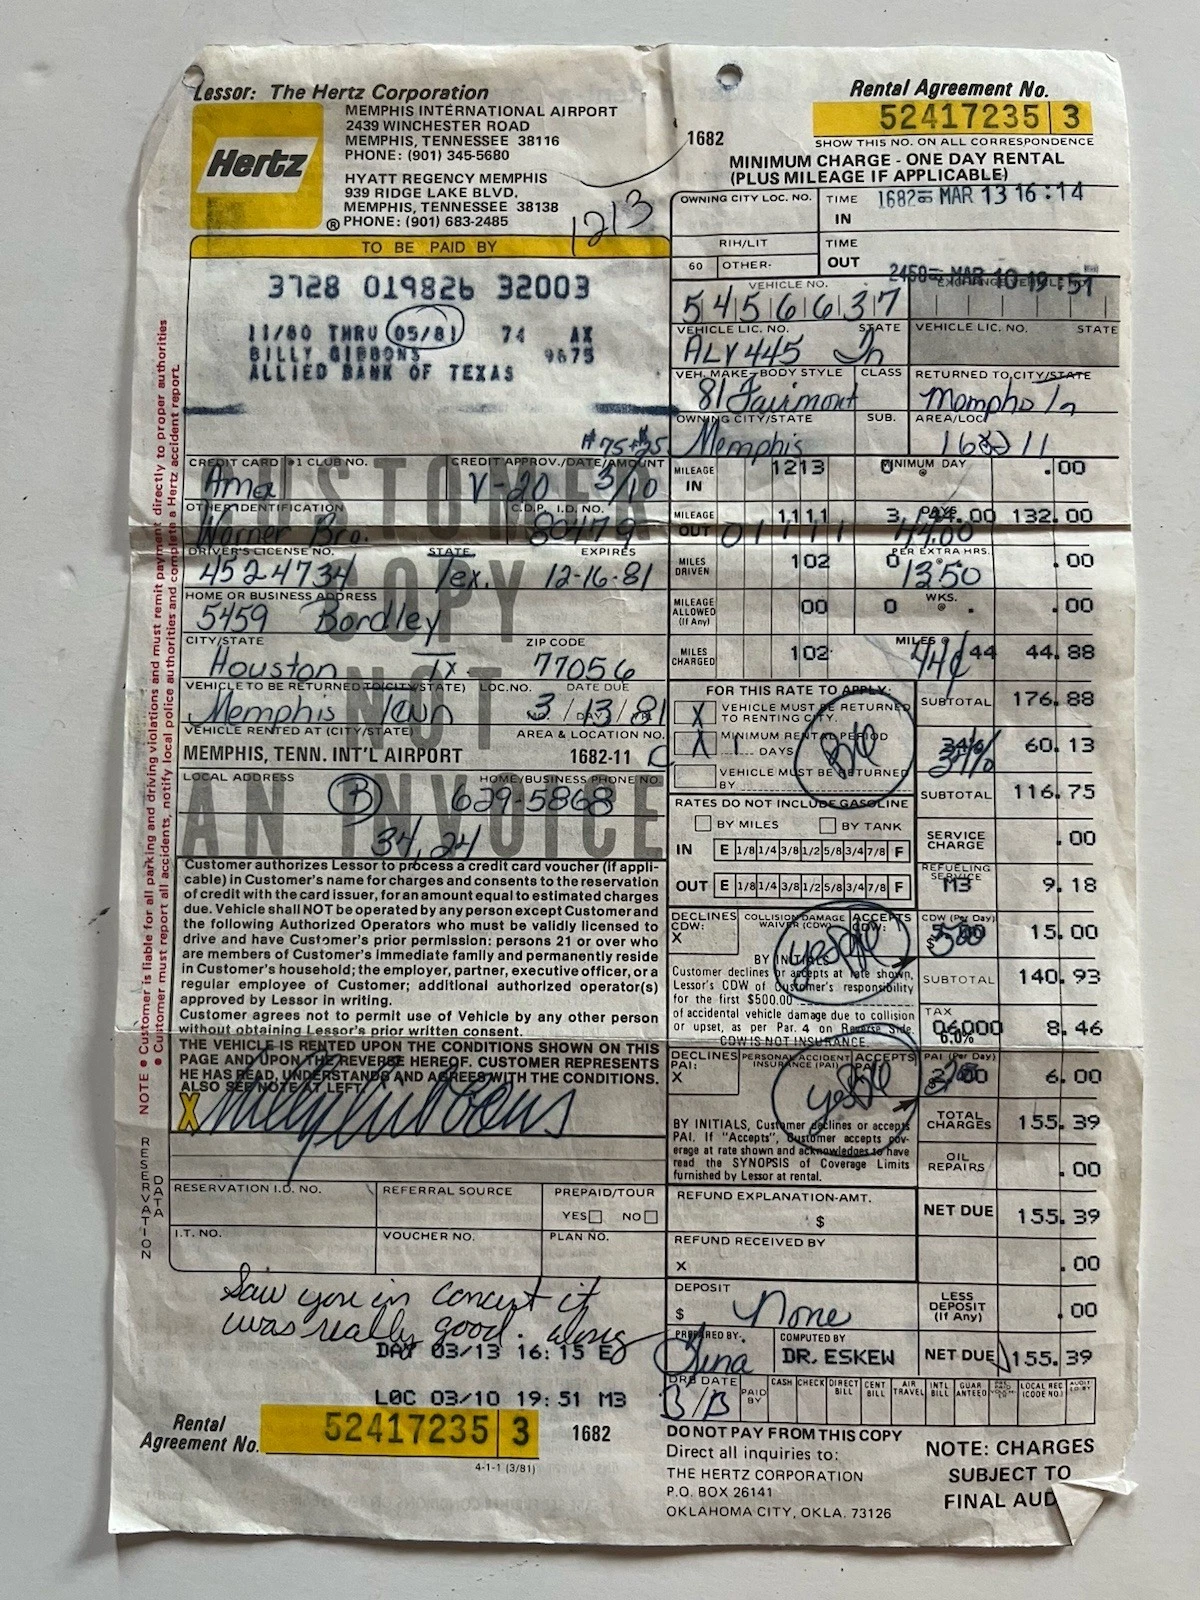 Lessor: The Hertz Corporation
Hertz
®
MEMPHIS INTERNATIONAL AIRPORT
2439 WINCHESTER ROAD
MEMPHIS, TENNESSEE 38116
PHONE: (901) 345-5680
HYATT REGENCY MEMPHIS
939 RIDGE LAKE BLVD.
MEMPHIS, TENNESSEE 38138
PHONE: (901) 683-2485
1213
1682
Rental Agreement No.
52417235 3
SHOW THIS NO. ON ALL CORRESPONDENCE
MINIMUM CHARGE - ONE DAY RENTAL
(PLUS MILEAGE IF APPLICABLE)
TO BE PAID BY
3728 019826 32003
11/80 THRU 05/81 74 AX
BILLY GIBBONS 9675
ALLIED BANK OF TEXAS
OWNING CITY LOC. NO.
TIME IN
1682 MAR 13 16:14
RIH/LIT
60 OTHER-
TIME OUT
2450 MAR 10 19:51
VEHICLE NO.
5456637
VEHICLE LIC. NO. STATE
ALV445 Tn
VEHICLE LIC. NO. STATE
VEH. MAKE-BODY STYLE CLASS
81 Fairmont
RETURNED TO CITY/STATE
Mempho Tn
OWNING CITY/STATE SUB.
Memphis
AREA/LOC
CREDIT CARD #1 CLUB NO.
Amex
CREDIT APPROV./DATE/AMOUNT
V-20 3/10
OTHER IDENTIFICATION
Warner Bro.
C.D.P. I.D. NO.
80479
DRIVER'S LICENSE NO. STATE EXPIRES
4524734 Tex. 12-16-81
HOME OR BUSINESS ADDRESS
5459 Bordley
CITY/STATE ZIP CODE
Houston Tx 77056
VEHICLE TO BE RETURNED TO (CITY/STATE) LOC. NO. DATE DUE
Memphis Tenn 3/13/81
VEHICLE RENTED AT (CITY/STATE) AREA & LOCATION NO.
MEMPHIS, TENN. INT'L AIRPORT 1682-11
LOCAL ADDRESS HOME/BUSINESS PHONE NO.
B 629-5868
34,24
CUSTOMER
COPY
NOT
AN INVOICE
MILEAGE IN 1213 0 MINIMUM DAY @ .00
MILEAGE OUT 1111 3 DAYS 44.00 132.00
01111 44.00
MILES DRIVEN 102 0 PER EXTRA HRS. @ .00
13.50
MILEAGE ALLOWED (If Any) 00 0 WKS. @ . .00
MILES CHARGED 102 MILES @ 44 44.88
44¢
FOR THIS RATE TO APPLY:
X VEHICLE MUST BE RETURNED TO RENTING CITY.
X MINIMUM RENTAL PERIOD 1 DAYS
VEHICLE MUST BE RETURNED BY
SUBTOTAL 176.88
34% 60.13
SUBTOTAL 116.75
RATES DO NOT INCLUDE GASOLINE
BY MILES BY TANK
IN E 1/8 1/4 3/8 1/2 5/8 3/4 7/8 F
OUT E 1/8 1/4 3/8 1/2 5/8 3/4 7/8 F
SERVICE CHARGE .00
REFUELING SERVICE M3 9.18
DECLINES CDW: X
COLLISION DAMAGE WAIVER (CDW)
ACCEPTS CDW:
yes
BY INITIALS
Customer declines or accepts at rate shown, Lessor's CDW of Customer's responsibility for the first $500.00
of accidental vehicle damage due to collision or upset, as per Par. 4 on Reverse Side.
CDW IS NOT INSURANCE
CDW (Per Day) 5.00 15.00
SUBTOTAL 140.93
TAX 06000 6.0% 8.46
DECLINES PAI: X
PERSONAL ACCIDENT INSURANCE (PAI)
ACCEPTS PAI:
yes
BY INITIALS, Customer declines or accepts
PAI. If "Accepts", Customer accepts cov-
erage at rate shown and acknowledges to have
read the SYNOPSIS of Coverage Limits
furnished by Lessor at rental.
PAI (Per Day) 6.00
TOTAL CHARGES 155.39
OIL REPAIRS .00
NET DUE 155.39
.00
Customer authorizes Lessor to process a credit card voucher (if appli-
cable) in Customer's name for charges and consents to the reservation
of credit with the card issuer, for an amount equal to estimated charges
due. Vehicle shall NOT be operated by any person except Customer and
the following Authorized Operators who must be validly licensed to
drive and have Customer's prior permission: persons 21 or over who
are members of Customer's immediate family and permanently reside
in Customer's household; the employer, partner, executive officer, or a
regular employee of Customer; additional authorized operator(s)
approved by Lessor in writing.
Customer agrees not to permit use of Vehicle by any other person
without obtaining Lessor's prior written consent.
THE VEHICLE IS RENTED UPON THE CONDITIONS SHOWN ON THIS
PAGE AND UPON THE REVERSE HEREOF. CUSTOMER REPRESENTS
HE HAS READ, UNDERSTANDS AND AGREES WITH THE CONDITIONS.
ALSO SEE NOTE AT LEFT.
X Billy Gibbons
NOTE ● Customer is liable for all parking and driving violations and must remit payment directly to proper authorities
● Customer must report all accidents, notify local police authorities and complete a Hertz accident report.
RESERVATION DATA
RESERVATION I.D. NO. REFERRAL SOURCE PREPAID/TOUR
YES NO
I.T. NO. VOUCHER NO. PLAN NO.
REFUND EXPLANATION-AMT.
$
REFUND RECEIVED BY
X
DEPOSIT
$ None
LESS DEPOSIT (If Any) .00
PREPARED BY. Gina
COMPUTED BY DR. ESKEW
NET DUE 155.39
Saw you in concert it
was really good.
DAY 03/13 16:15
LOC 03/10 19:51 M3
DRB DATE
PAID BY CASH CHECK DIRECT BILL CENT BILL AIR TRAVEL INTL BILL GUAR ANTEED LOCAL REC (CODE NO.)
Rental Agreement No. 52417235 3 1682
4-1-1 (3/81)
DO NOT PAY FROM THIS COPY
Direct all inquiries to:
THE HERTZ CORPORATION
P.O. BOX 26141
OKLAHOMA CITY, OKLA. 73126
NOTE: CHARGES
SUBJECT TO
FINAL AUD